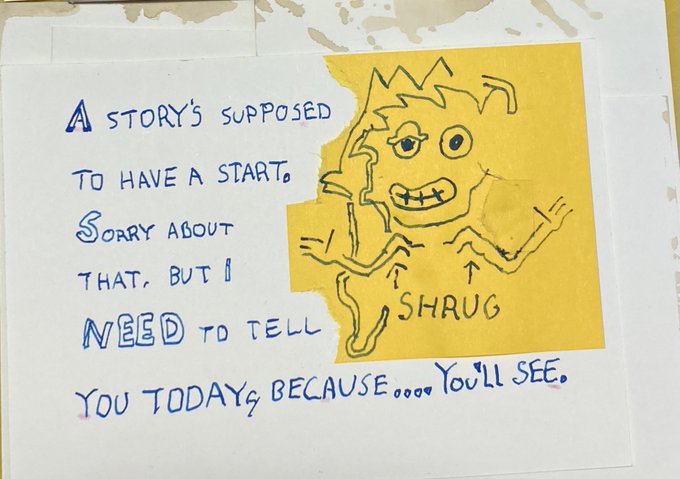 A STORY'S SUPPOSED
TO HAVE A START.
SORRY ABOUT
THAT, BUT I
NEED TO TELL
YOU TODAY, BECAUSE.... YOU'LL SEE.
SHRUG